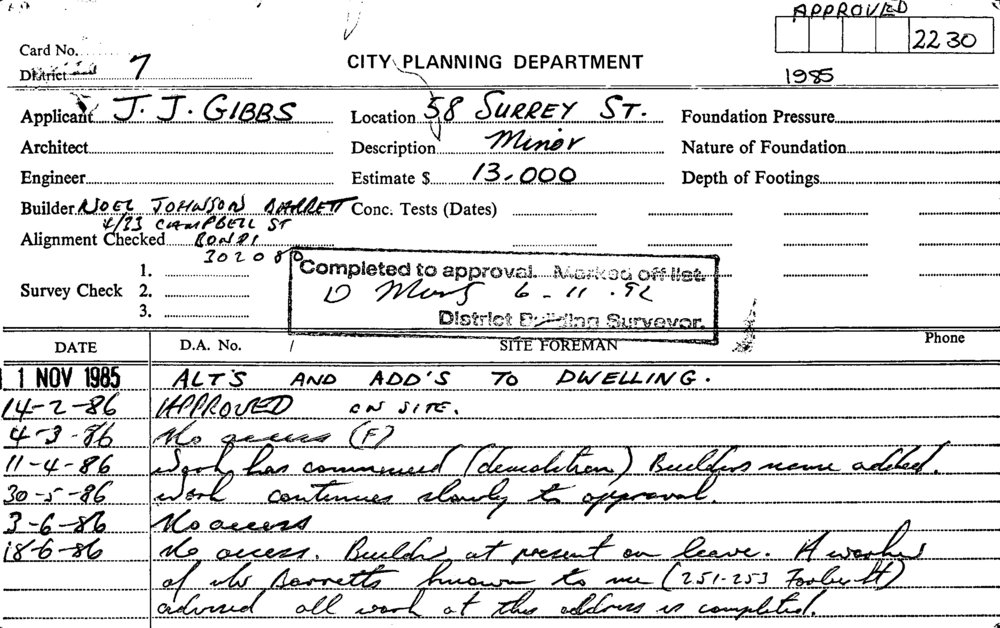 APPROVED
2230
1985
Card No.
District 7
CITY PLANNING DEPARTMENT
Applicant J. J. GIBBS
Location 58 SURREY ST.
Foundation Pressure
Architect
Description Minor
Nature of Foundation
Engineer
Estimate $ 13,000
Depth of Footings
Builder NOEL JOHNSON BARRETT
Conc. Tests (Dates)
4/23 CAMPBELL ST
Alignment Checked BONDI
302080
Completed to approval. Marked off list.
6-11-92
District Building Surveyor.
Survey Check
1.
2.
3.
DATE
D.A. No.
SITE FOREMAN
Phone
1 NOV 1985 ALT'S AND ADD'S TO DWELLING.
14-2-86 APPROVED ON SITE.
4-3-86 No access (F)
11-4-86 Work has commenced (demolition) Builders name added.
30-5-86 Work continues slowly to approval.
3-6-86 No access
18-6-86 No access. Builder at present on leave. A worker
of Mr Barretts known to me (251-253
advised all work at this address is completed.